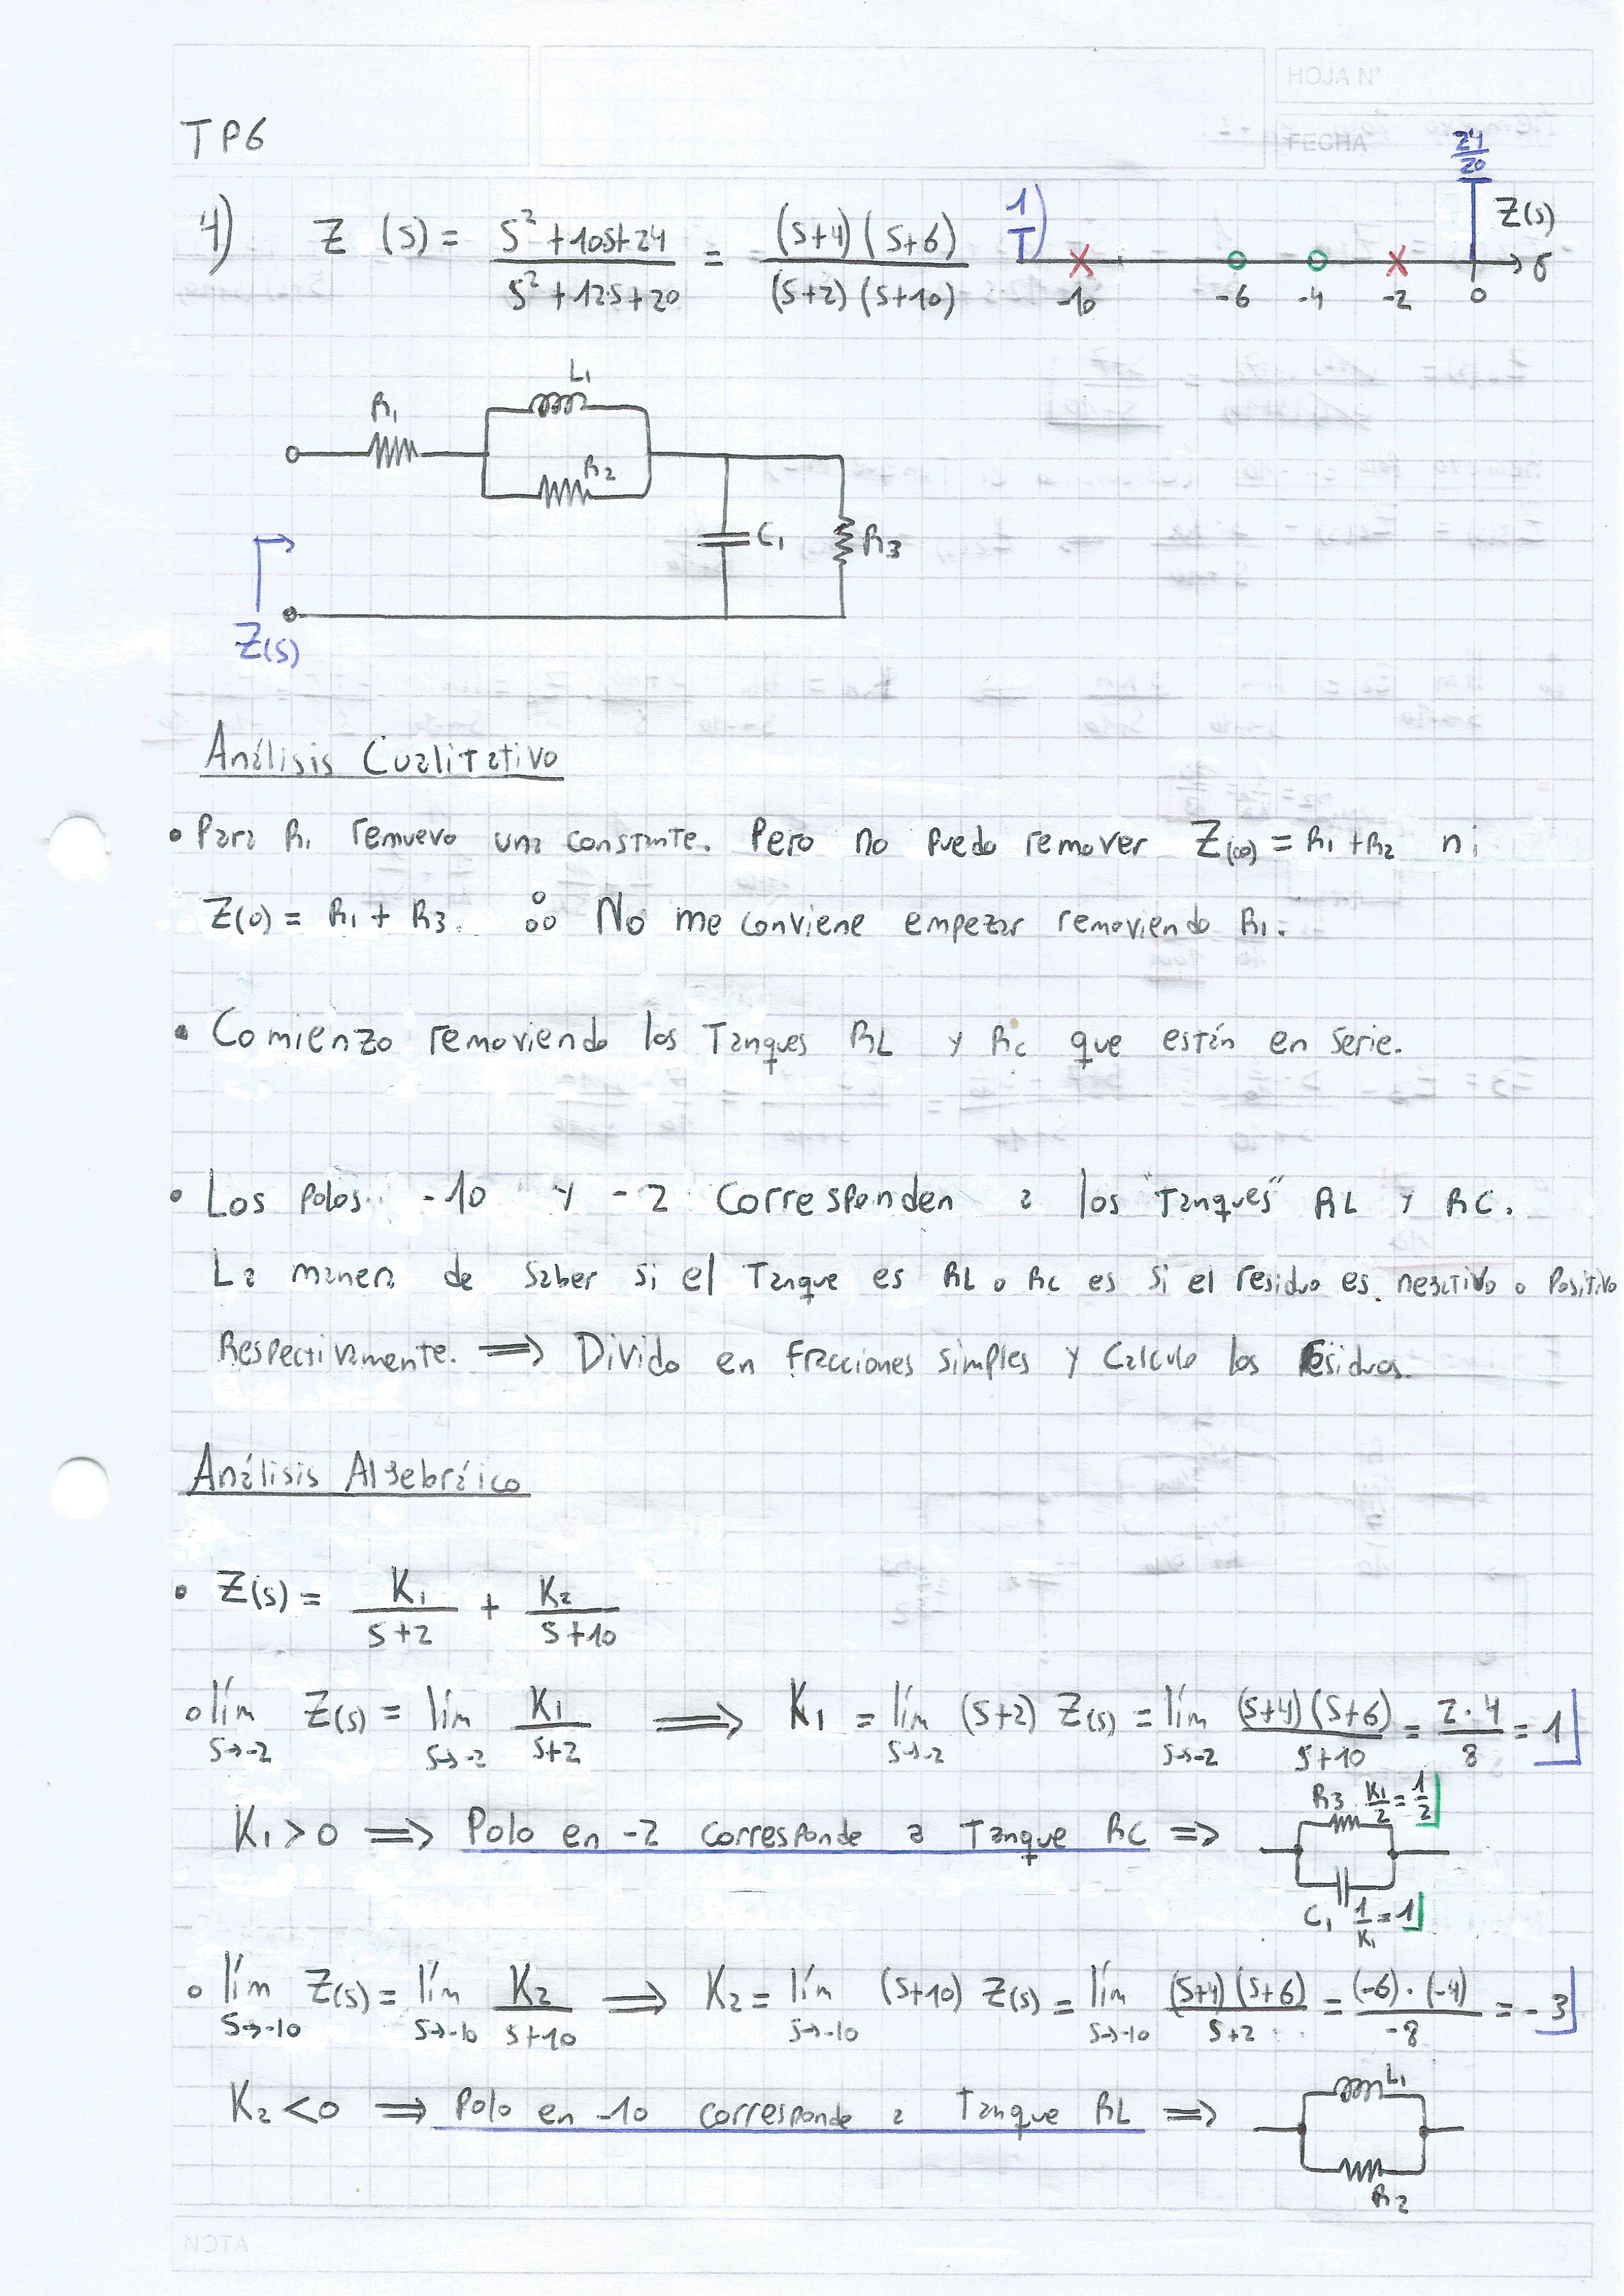 HOJA Nº
FECHA
TP6
4) Z(s) = (s²+10s+24)/(s²+12s+20) = ((s+4)(s+6))/((s+2)(s+10))
1
24/20
Z(s)
σ
-10 -6 -4 -2 0
L1
R1
R2
C1 R3
Z(s)
Análisis Cualitativo
• Para R1 remuevo una constante. Pero no puedo remover Z(∞) = R1+R2 ni
Z(0) = R1 + R3. ∴ No me conviene empezar removiendo R1.
• Comienzo removiendo los Tanques RL y RC que están en serie.
• Los polos -10 y -2 corresponden a los "Tanques" RL y RC.
La manera de saber si el Tanque es RL o RC es si el residuo es negativo o positivo
Respectivamente. ⟹ Divido en fracciones simples y Calculo los Residuos.
Análisis Algebráico
• Z(s) = K1/(s+2) + K2/(s+10)
∘ lím s→-2 Z(s) = lím s→-2 K1/(s+2) ⟹ K1 = lím s→-2 (s+2) Z(s) = lím s→-2 ((s+4)(s+6))/(s+10) = (2·4)/8 = 1
K1>0 ⟹ Polo en -2 corresponde a Tanque RC ⟹
R3 K1/2 = 1/2
C1 1/K1 = 1
∘ lím s→-10 Z(s) = lím s→-10 K2/(s+10) ⟹ K2 = lím s→-10 (s+10) Z(s) = lím s→-10 ((s+4)(s+6))/(s+2) = ((-6)·(-4))/-8 = -3
K2<0 ⟹ Polo en -10 corresponde a Tanque RL ⟹
L1
R2